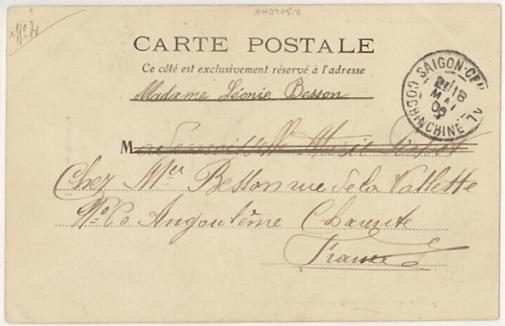 No 4
CARTE POSTALE
Ce côté est exclusivement réservé à l'adresse
Madame Léonie Besson
Mademoiselle Marie
Chez Mer Besson rue de la Vallette
No Angoulême Charente
France
SAIGON-CEN
18
MAI
COCHINCHINE